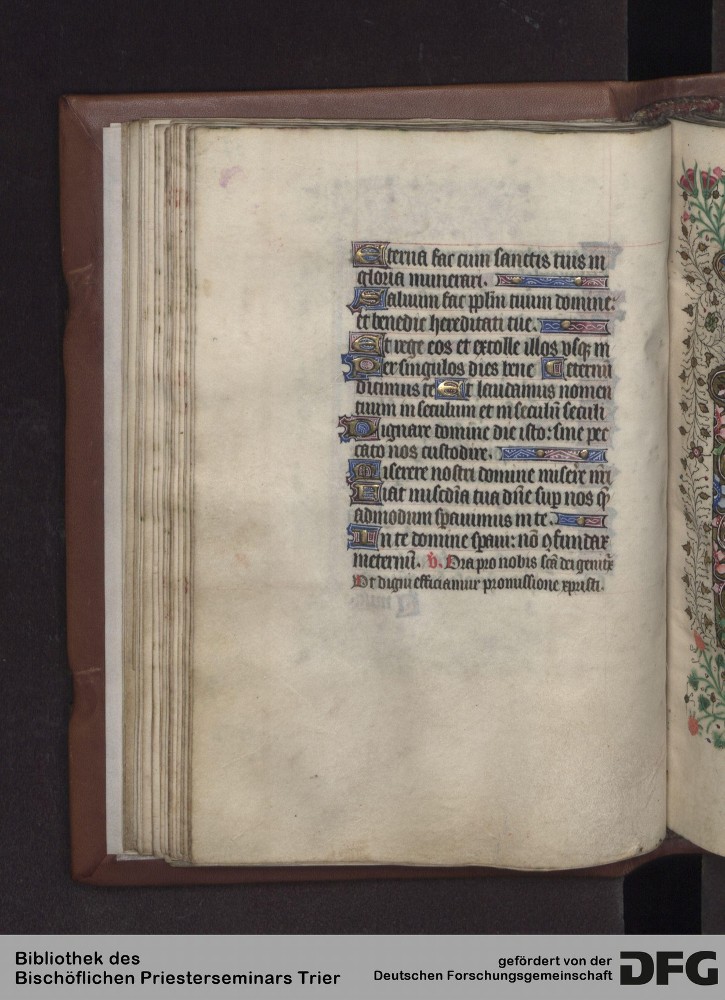 Eterna fac cum sanctis tuis in
gloria munerari.
Saluum fac pplm tuum domine:
et benedic hereditati tue.
Et rege eos et extolle illos vsq; in
Per singulos dies bene eternu
dicimus te Et laudamus nomen
tuum in seculum et in seculu seculi
Dignare domine die isto: sine pec
cato nos custodire.
Miserere nostri domine misere nri
Fiat miscdia tua dne sup nos q
admodum sperauimus in te.
In te domine speraui: no ꝯfundar
in eternu. v. Ora pro nobis sca dei genitx
Vt digni efficiamur promissione xpristi.
Bibliothek des
Bischöflichen Priesterseminars Trier
gefördert von der
Deutschen Forschungsgemeinschaft
DFG